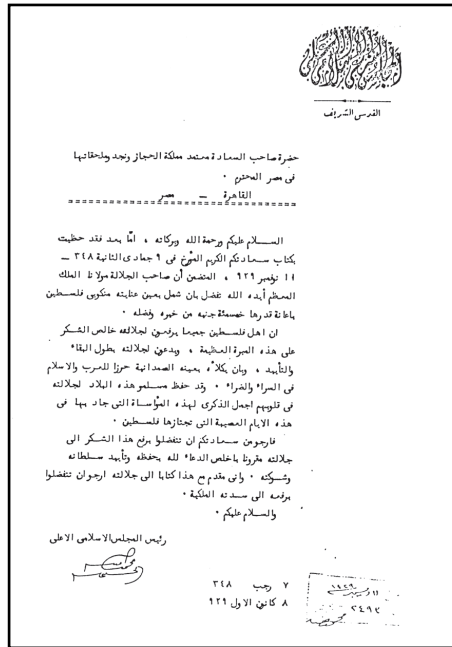 المجلس الشرعي الإسلامي الأعلى
القدس الشريف
حضرة صاحب السعادة معتمد مملكة الحجاز ونجد وملحقاتها
فى مصر المحترم ٠
القاهرة ــ مصر
السلام عليكم ورحمة الله وبركاته ، امّا بعد فقد حظيت
بكتاب سعادتكم الكريم المؤرخ فى ٩ جمادى الثانية ٣٤٨ ــ
١١ نوفمبر ٩٢٩ ، المتضمن أن صاحب الجلالة مولانا الملك
المعظم أيده الله تفضل بان شمل بعين عنايته منكوبى فلسطين
باعانة قدرها خمسمئة جنيه من خيره وفضله ٠
ان اهل فلسطين جميعا يرفعون لجلالته خالص الشكر
على هذه المبرة العظيمة ، ويدعون لجلالته بطول البقاء
والتأييد ، وبان يكلأه بعينه الصمدانية حرزا للعرب والاسلام
فى السراء والضراء ٠ وقد حفظ مسلمو هذه البلاد لجلالته
فى قلوبهم اجمل الذكرى لهذه المؤاساة التى جاد بها فى
هذه الايام العصيبة التى تجتازها فلسطين ٠
فارجو من سعادتكم ان تتفضلوا برفع هذا الشكر الى
جلالته مقرونا باخلص الدعاء لله بحفظه وتأييد سلطانه
وشوكته ٠ وانى مقدم مع هذا كتابا الى جلالته ارجو ان تتفضلوا
برفعه الى سدته الملكية ٠
والسلام عليكم ٠
رئيس المجلس الاسلامى الاعلى
٧ رجب ٣٤٨
٨ كانون الاول ٩٢٩
١١ ديسمبر ١٩٢٩
٢٤٩٢